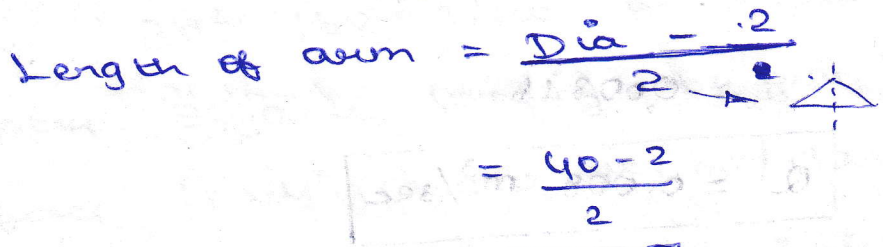 Length of arm = Dia - .2
2
= 40 - 2
2